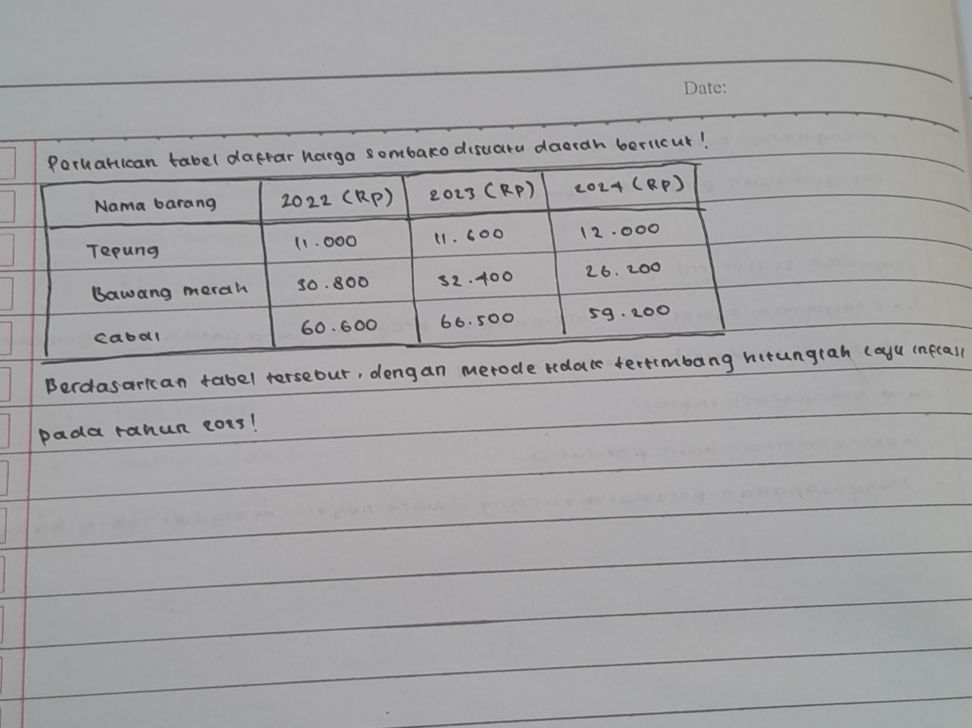 Date:
Perhatikan tabel daftar harga sembako disuatu daerah berikut!
Nama barang 2022 (Rp) 2023 (Rp) 2024 (Rp)
Tepung 11.000 11.600 12.000
Bawang merah 30.800 32.400 26.200
Cabai 60.600 66.500 59.200
Berdasarkan tabel tersebut, dengan metode tidak tertimbang hitunglah laju inflasi
pada tahun 2023!